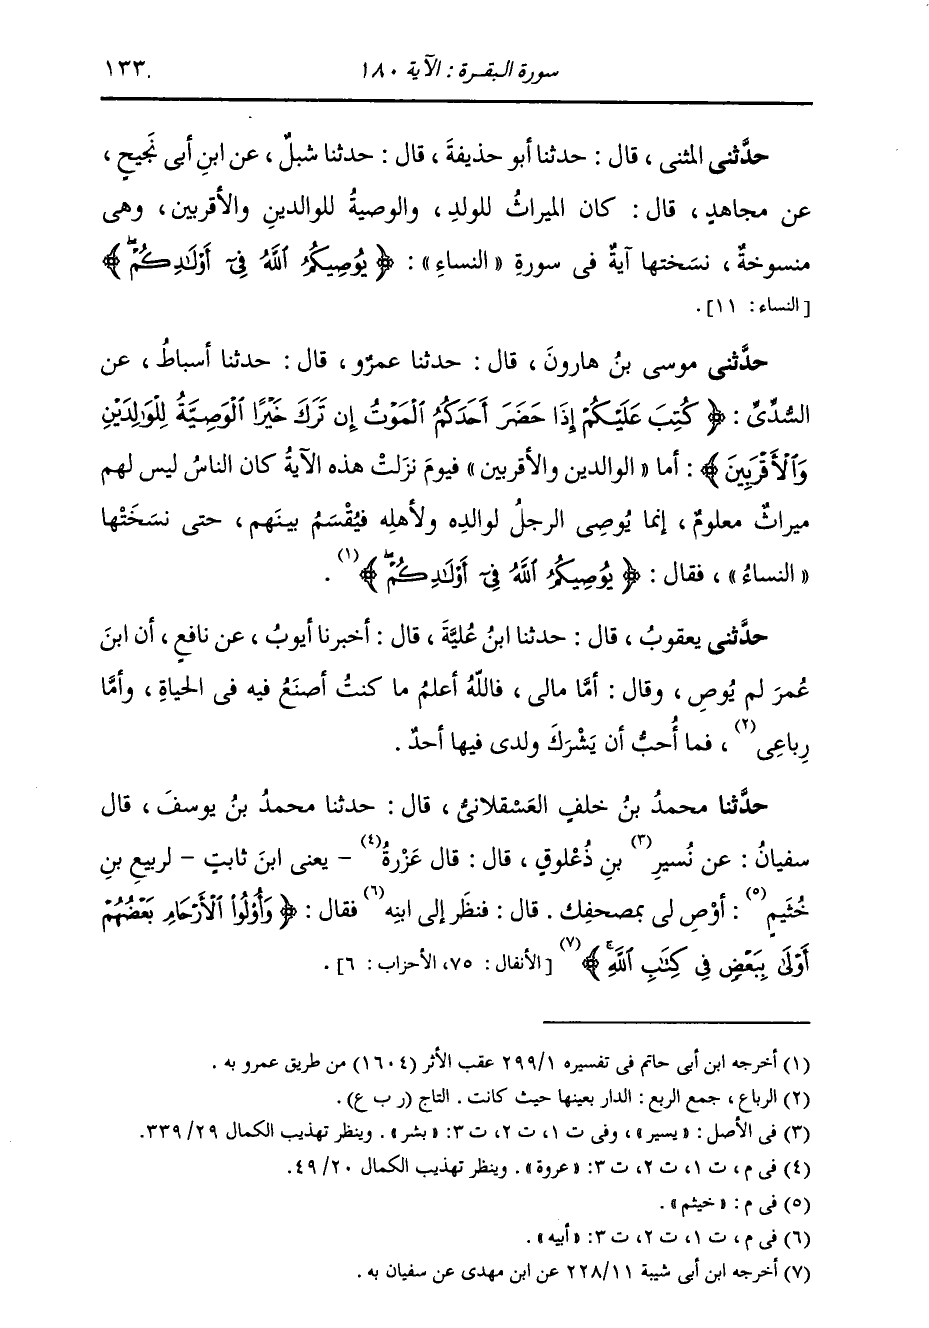 سورة البقرة : الآية ١٨٠
١٣٣.
حدَّثنى المثنى ، قال : حدثنا أبو حذيفةَ ، قال : حدثنا شبلٌ ، عن ابنِ أبى نَجيحٍ ،
عن مجاهدٍ ، قال : كان الميراثُ للولدِ ، والوصيةُ للوالدينِ والأقربين ، وهى
منسوخةٌ ، نسَختها آيةٌ فى سورةِ « النساءِ » : ﴿ يُوصِيكُمُ ٱللَّهُ فِىٓ أَوْلَـٰدِكُمْۖ ﴾
[ النساء : ١١ ] .
حدَّثنى موسى بنُ هارونَ ، قال : حدثنا عمرٌو ، قال : حدثنا أسباطُ ، عن
السُّدِّىِّ : ﴿ كُتِبَ عَلَيْكُمْ إِذَا حَضَرَ أَحَدَكُمُ ٱلْمَوْتُ إِن تَرَكَ خَيْرًا ٱلْوَصِيَّةُ لِلْوَٰلِدَيْنِ
وَٱلْأَقْرَبِينَ ﴾ : أما « الوالدين والأقربين » فيومَ نزَلتْ هذه الآيةُ كان الناسُ ليس لهم
ميراثٌ معلومٌ ، إنما يُوصِى الرجلُ لوالدِه ولأهلِه فيُقْسَمُ بينَهم ، حتى نسَخَتْها
« النساءُ » ، فقال : ﴿ يُوصِيكُمُ ٱللَّهُ فِىٓ أَوْلَـٰدِكُمْۖ ﴾(١) .
حدَّثنى يعقوبُ ، قال : حدثنا ابنُ عُليَّةَ ، قال : أخبرنا أيوبُ ، عن نافعٍ ، أن ابنَ
عُمرَ لم يُوصِ ، وقال : أمَّا مالى ، فاللّهُ أعلمُ ما كنتُ أصنَعُ فيه فى الحياةِ ، وأمَّا
رِباعِى(٢) ، فما أُحبُّ أن يَشْرَكَ ولدى فيها أحدٌ .
حدَّثنا محمدُ بنُ خلفٍ العَسْقلانىُّ ، قال : حدثنا محمدُ بنُ يوسفَ ، قال
سفيانُ : عن نُسيرِ(٣) بنِ ذُعْلوقٍ ، قال : قال عَزْرةُ(٤) - يعنى ابنَ ثابتٍ - لربيعِ بنِ
خُثَيمٍ(٥) : أوْصِ لى بمصحفِك . قال : فنظَر إلى ابنِه(٦) فقال : ﴿ وَأُوْلُوا۟ ٱلْأَرْحَامِ بَعْضُهُمْ
أَوْلَىٰ بِبَعْضٍ فِى كِتَـٰبِ ٱللَّهِۚ ﴾(٧) [ الأنفال : ٧٥، الأحزاب : ٦ ] .
(١) أخرجه ابن أبى حاتم فى تفسيره ٢٩٩/١ عقب الأثر (١٦٠٤) من طريق عمرو به .
(٢) الرباع ، جمع الربع : الدار بعينها حيث كانت . التاج (ر ب ع) .
(٣) فى الأصل : « يسير » ، وفى ت ١، ت ٢، ت ٣: « بشر » . وينظر تهذيب الكمال ٣٣٩/٢٩.
(٤) فى م ، ت ١، ت ٢، ت ٣: « عروة » . وينظر تهذيب الكمال ٤٩/٢٠.
(٥) فى م : « خيثم » .
(٦) فى م ، ت ١، ت ٢، ت ٣: « أبيه » .
(٧) أخرجه ابن أبى شيبة ٢٢٨/١١ عن ابن مهدى عن سفيان به .